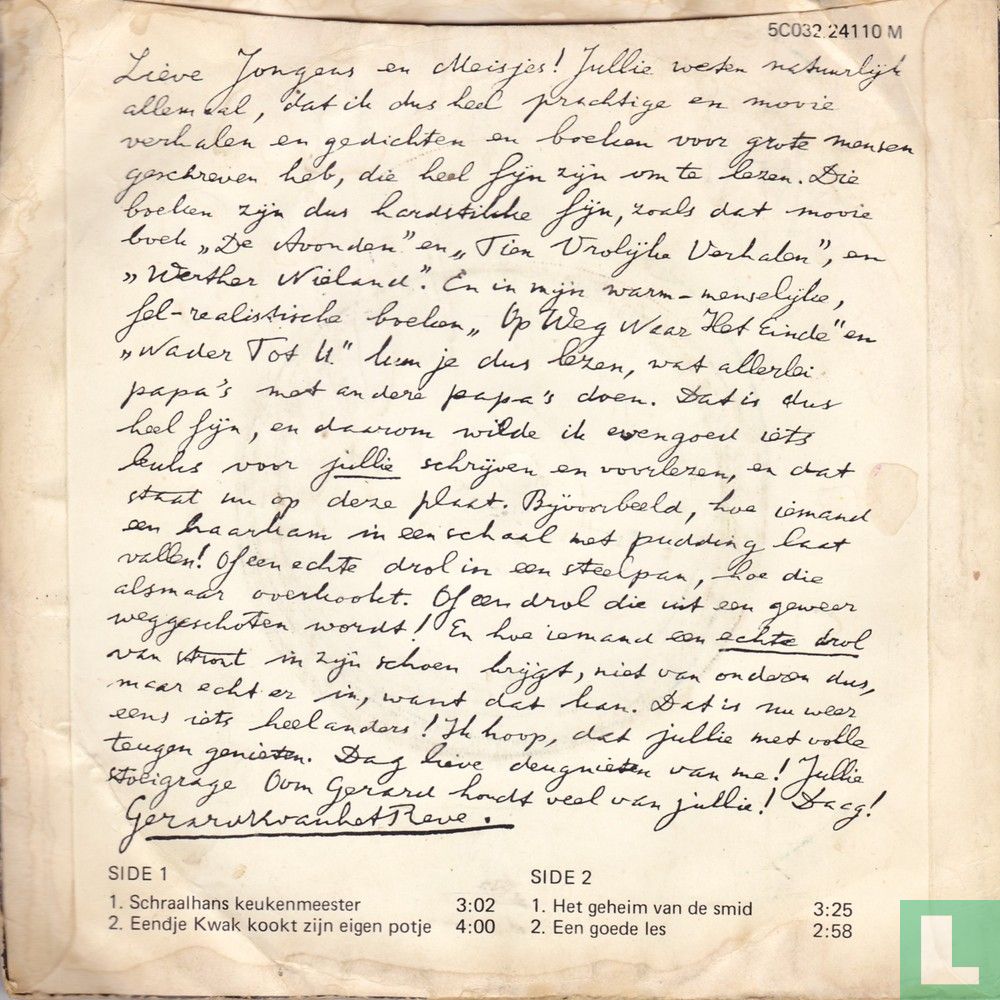 5C032 24110 M
Lieve Jongens en Meisjes! Jullie weten natuurlijk
allemaal, dat ik dus heel prachtige en mooie
verhalen en gedichten en boeken voor grote mensen
geschreven heb, die heel fijn zijn om te lezen. Die
boeken zijn dus hardstikke fijn, zoals dat mooie
boek „De Avonden” en „Tien Vrolijke Verhalen”, en
„Werther Nieland”. En in mijn warm-menselijke,
fel-realistische boeken „Op Weg Naar Het Einde” en
„Nader Tot U” kun je dus lezen, wat allerlei
papa's met andere papa's doen. Dat is dus
heel fijn, en daarom wilde ik evengoed iets
leuks voor jullie schrijven en voorlezen, en dat
staat nu op deze plaat. Bijvoorbeeld, hoe iemand
een haarkam in een schaal met pudding laat
vallen! Of een echte drol in een steelpan, hoe die
alsmaar overkookt. Of een drol die uit een geweer
weggeschoten wordt! En hoe iemand een echte drol
van stront in zijn schoen krijgt, niet van onderen dus,
maar echt er in, want dat kan. Dat is nu weer
eens iets heel anders! Ik hoop, dat jullie met volle
teugen genieten. Dag lieve deugnieten van me! Jullie
stoeigrage Oom Gerard houdt veel van jullie! Daag!
Gerard Kvanhet Reve.
SIDE 1
1. Schraalhans keukenmeester 3:02
2. Eendje Kwak kookt zijn eigen potje 4:00
SIDE 2
1. Het geheim van de smid 3:25
2. Een goede les 2:58
L